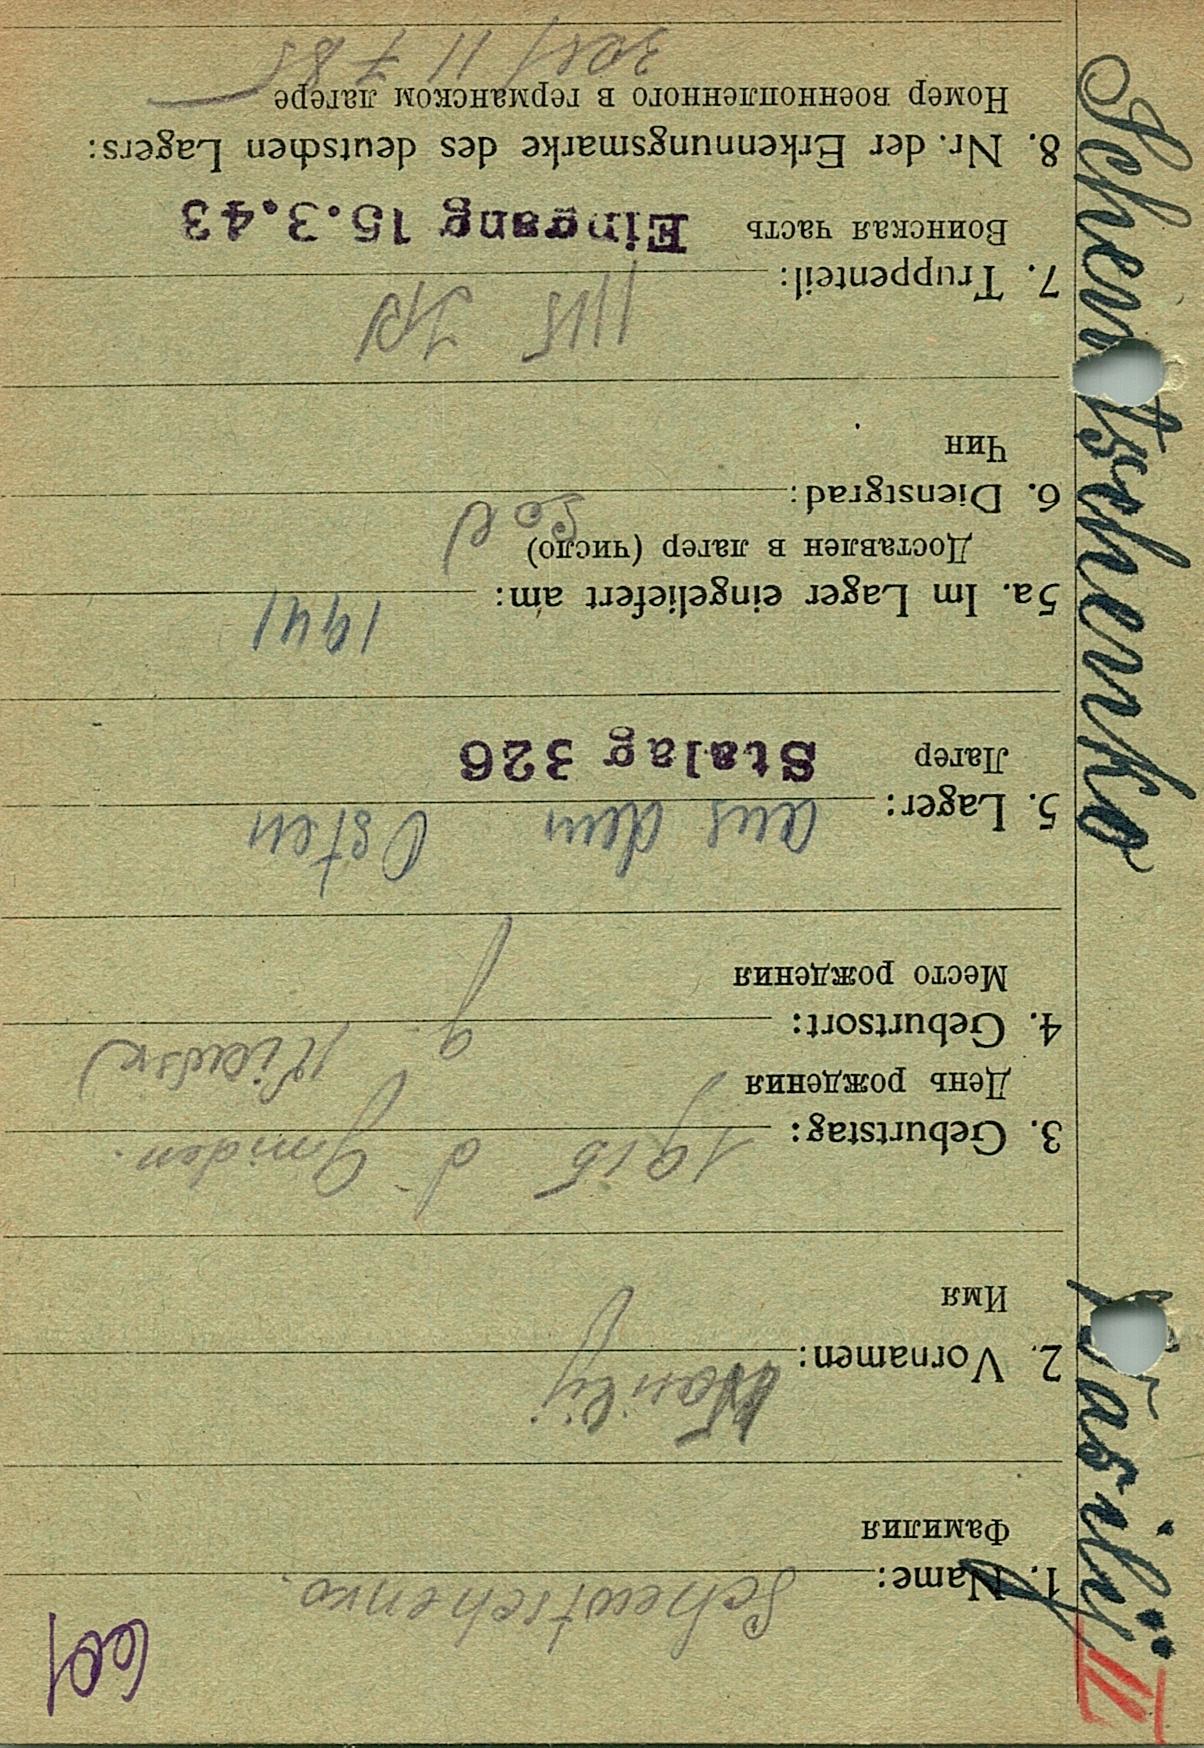 601
Schewtschenko Wasilij II
1. Name: Schewtschenko.
Фамилия
2. Vornamen: Wasilij
Имя
3. Geburtstag: 1915 d.
День рождения
4. Geburtsort: g.
Место рождения
aus dem Osten
5. Lager:
Лагер Stalag 326
5a. Im Lager eingeliefert am: 1941
Доставлен в лагер (число)
6. Dienstgrad: Sol
Чин
7. Truppenteil:
Воинская часть Eingang 15.3.43
8. Nr. der Erkennungsmarke des deutschen Lagers:
Номер военнопленного в германском лагере